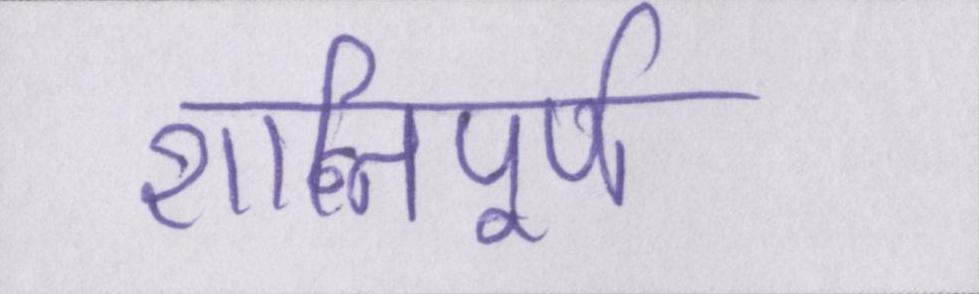 शान्तिपूर्ण